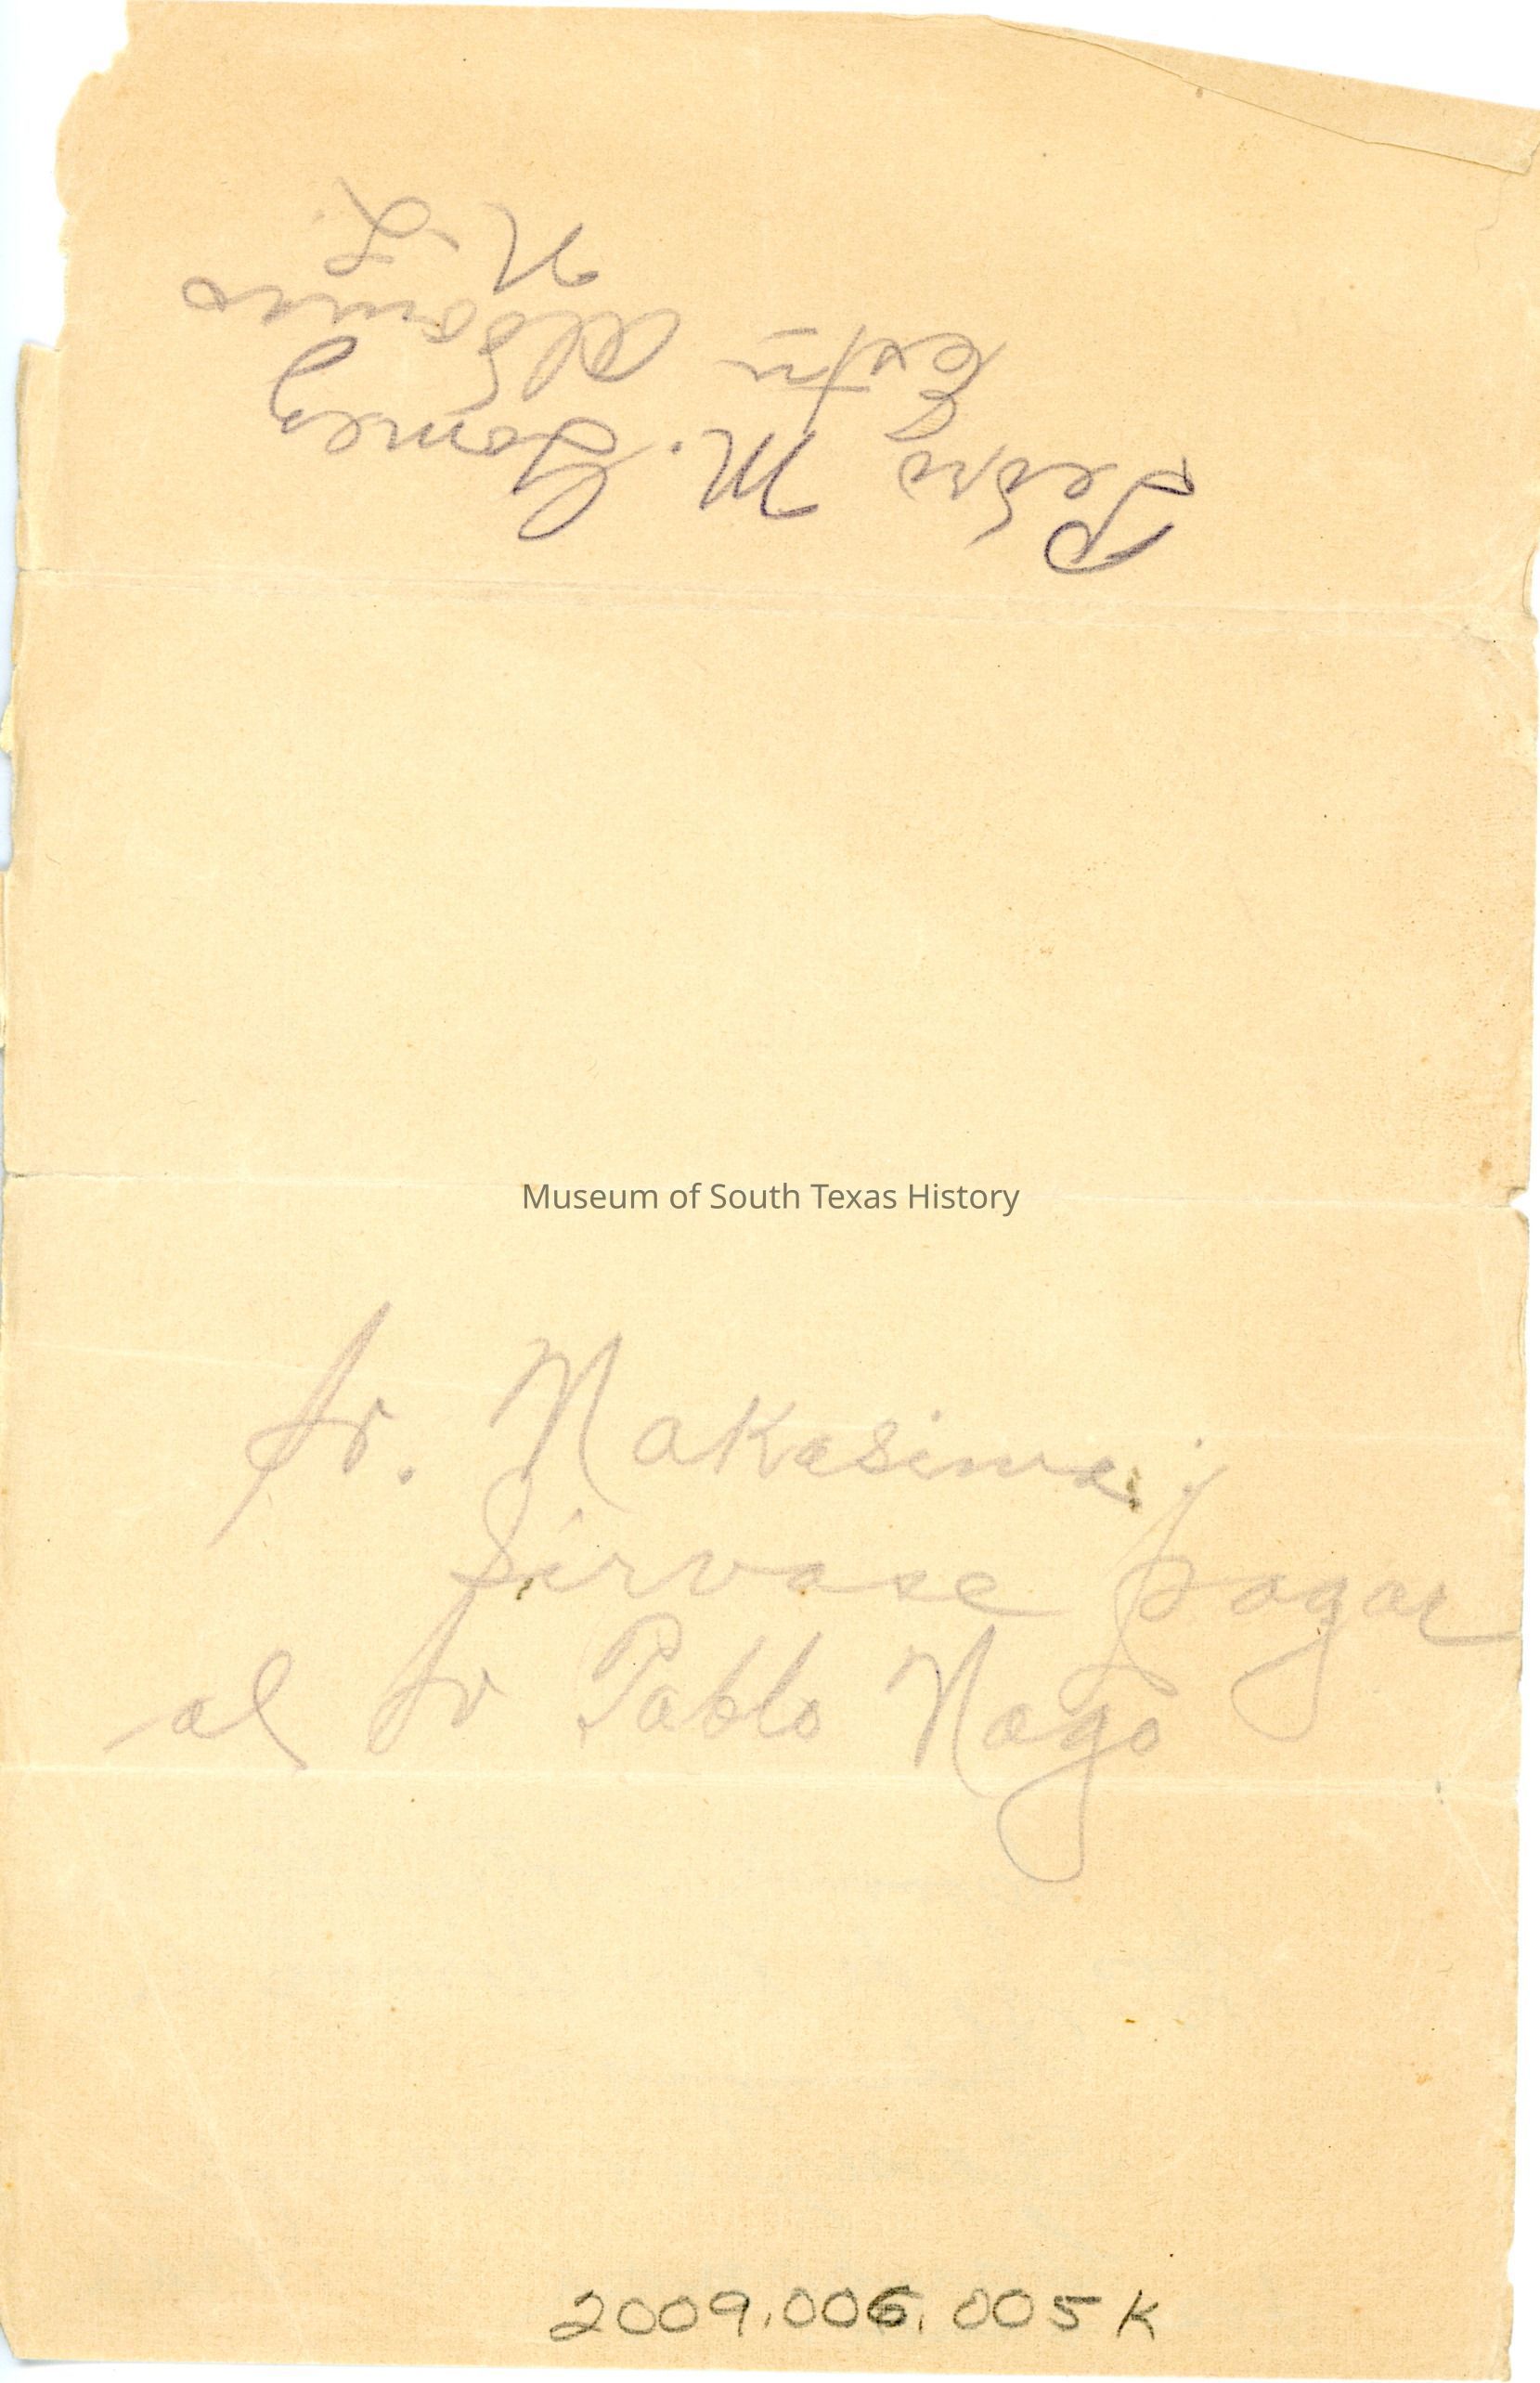 Pedro M. Gomez
Estn Aldamas
N. L.
Museum of South Texas History
Sr. Nakasima;
Sirvase pagar
al Sr Pablo Nago
2009.006.005K